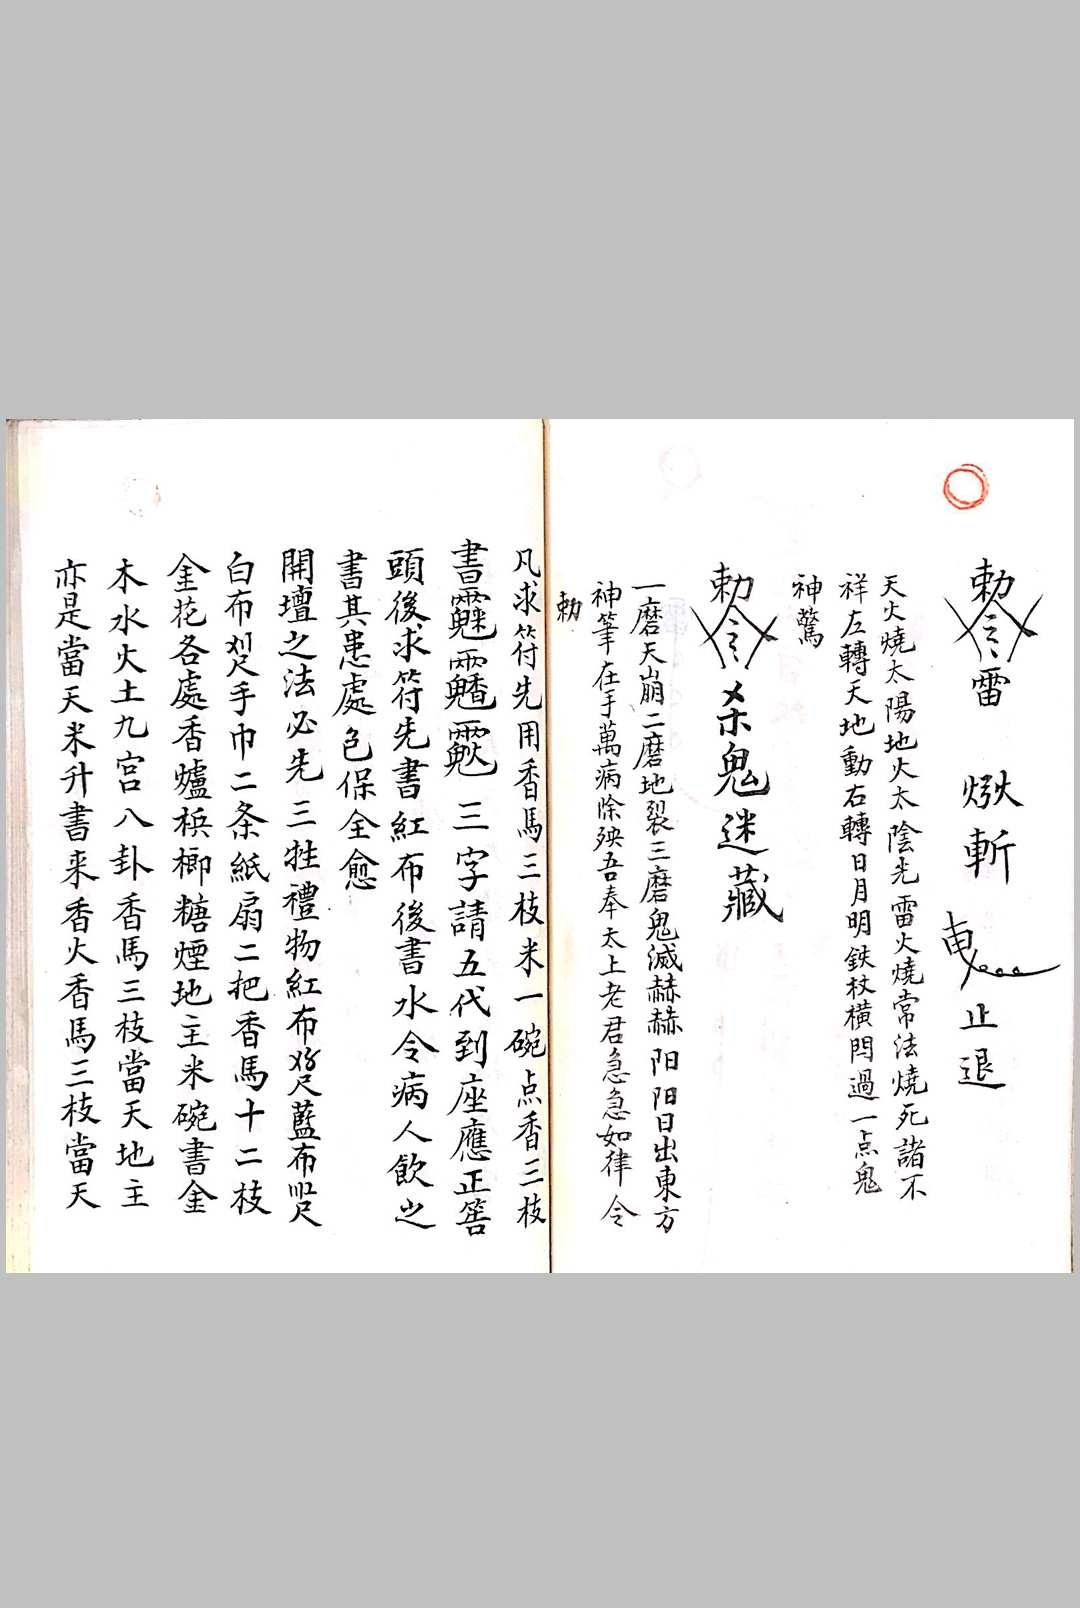 勅令雷 斬 止退
天火燒太陽地火太陰先雷火燒常法燒死諸不
祥左轉天地動右轉日月明鉄杖橫門過一点鬼
神驚
勅令 杀鬼迷藏
一磨天崩二磨地裂三磨鬼滅赫赫阳阳日出東方
神筆在手萬病除殃吾奉太上老君急急如律令
勅
凡求符先用香馬三枝米一碗点香三枝
書 三字請五代到座應正筶
頭後求符先書紅布後書水令病人飲之
書其患處包保全愈
開壇之法必先三牲禮物紅布 尺藍布 尺
白布 尺手巾二条紙扇二把香馬十二枝
金花各處香爐梹榔糖煙地主米碗書金
木水火土九宮八卦香馬三枝當天地主
亦是當天米升書来香火香馬三枝當天